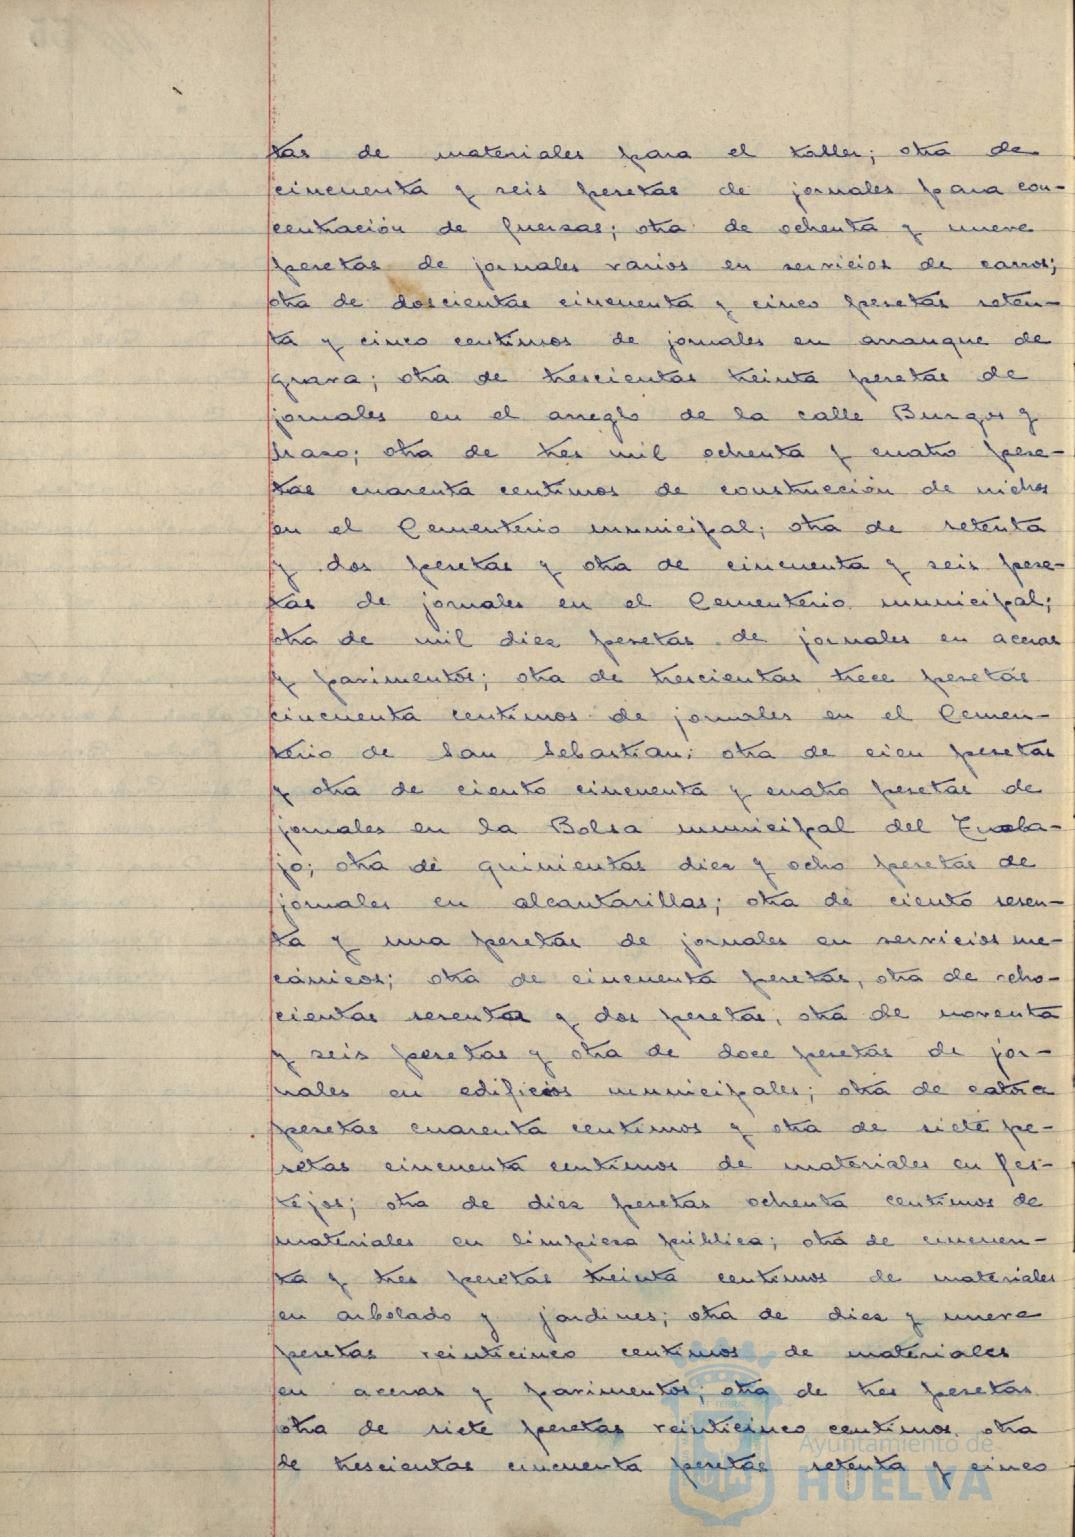 tas de materiales para el taller; otra de
cincuenta y seis pesetas de jornales para con-
centración de fuerzas; otra de ochenta y nueve
pesetas de jornales varios en servicios de carros;
otra de doscientas cincuenta y cinco pesetas seten-
ta y cinco centimos de jornales en arranque de
grava; otra de trescientas treinta pesetas de
jornales en el arreglo de la calle Burgos y
Mazo; otra de tres mil ochenta y cuatro pese-
tas cuarenta centimos de construcción de nichos
en el Cementerio municipal; otra de setenta
y dos pesetas y otra de cincuenta y seis pese-
tas de jornales en el Cementerio municipal;
otra de mil diez pesetas de jornales en aceras
y pavimentos; otra de trescientas trece pesetas
cincuenta centimos de jornales en el Cemen-
terio de San Sebastian; otra de cien pesetas
y otra de ciento cincuenta y cuatro pesetas de
jornales en la Bolsa municipal del Traba-
jo; otra de quinientas diez y ocho pesetas de
jornales en alcantarillas; otra de ciento sesen-
ta y una pesetas de jornales en servicios me-
cánicos; otra de cincuenta pesetas, otra de ocho-
cientas sesenta y dos pesetas, otra de noventa
y seis pesetas y otra de doce pesetas de jor-
nales en edificios municipales; otra de catorce
pesetas cuarenta centimos y otra de siete pe-
setas cincuenta centimos de materiales en fes-
tejos; otra de diez pesetas ochenta centimos de
materiales en limpieza pública; otra de cincuen-
ta y tres pesetas treinta centimos de materiales
en arbolado y jardines; otra de diez y nueve
pesetas veinticinco centimos de materiales
en aceras y pavimentos; otra de tres pesetas
otra de siete pesetas veinticinco centimos, otra
de trescientas cincuenta pesetas setenta y cinco
Ayuntamiento de
HUELVA